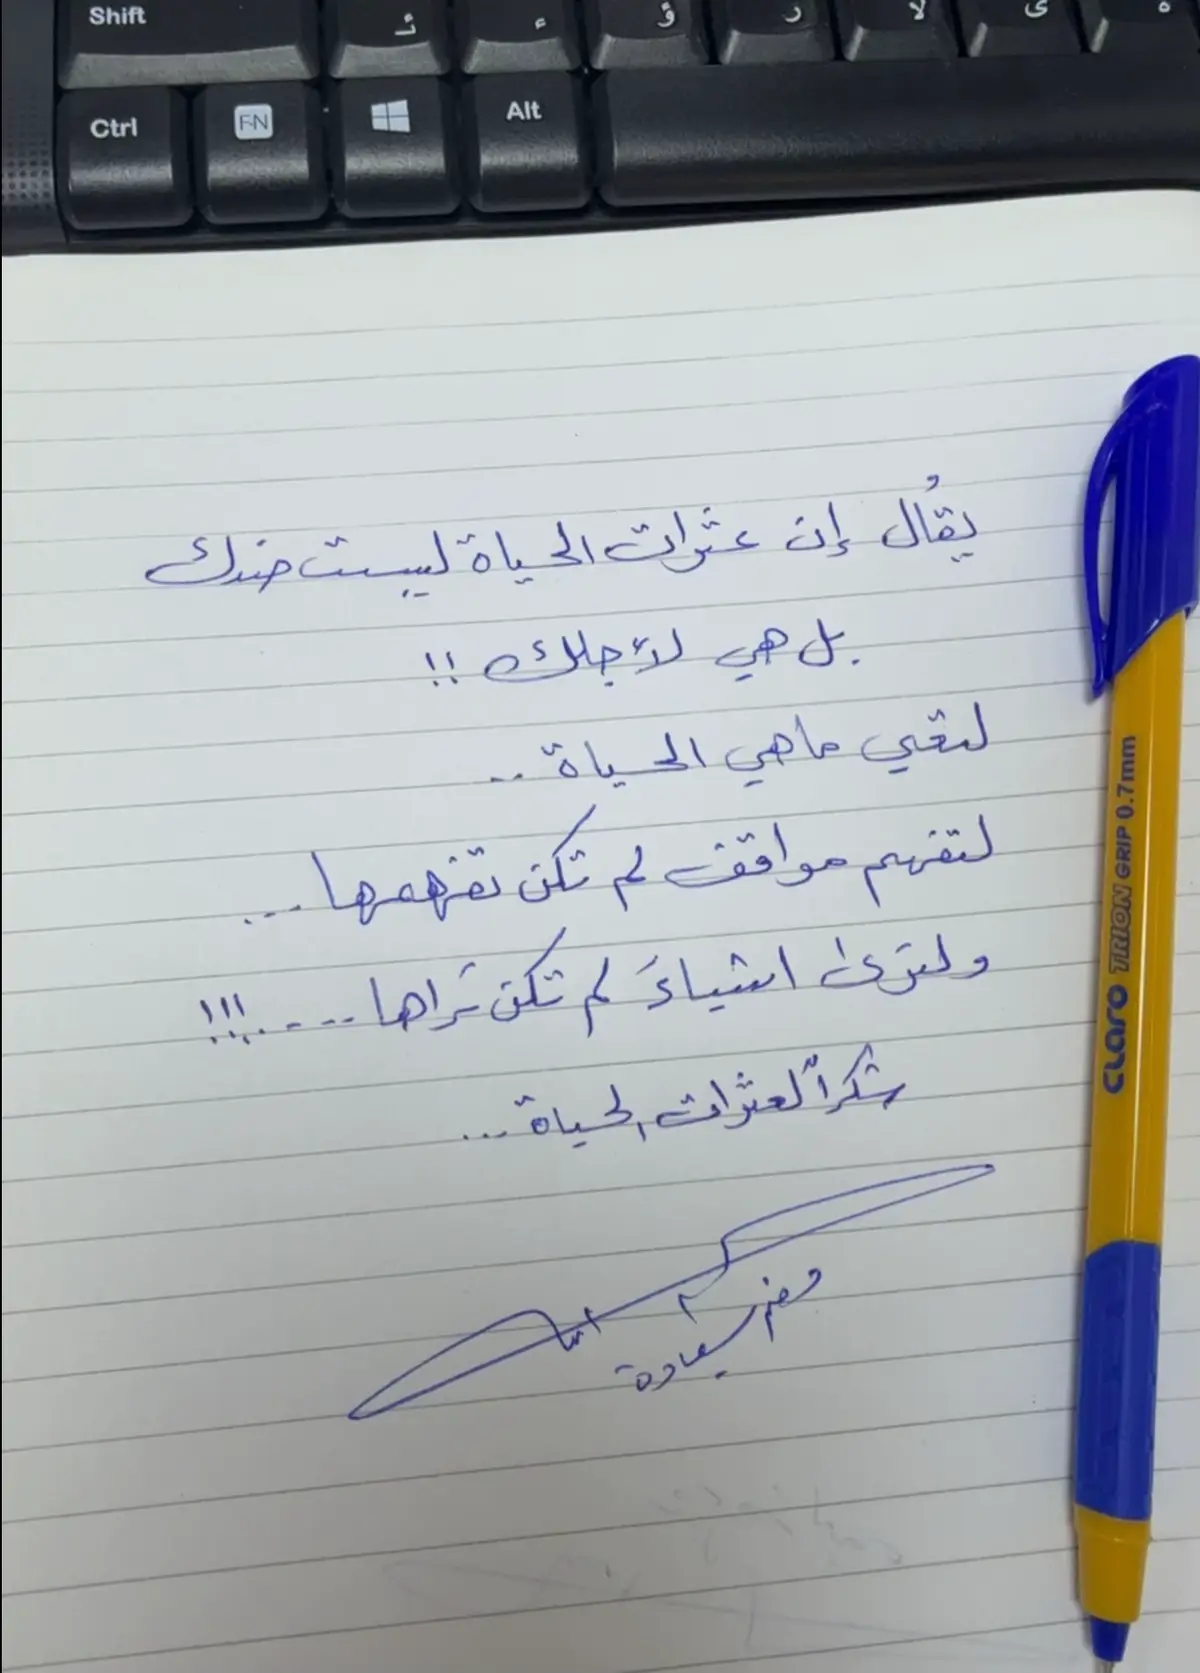 Shift ئ ء ؤ ر لا ى ة
Ctrl FN Alt
يقُال إن عثرات الحياة ليست ضدك
بل هي لأجلك !!
لتعي ماهي الحياة ..
لتفهم مواقف لم تكن تفهمها ...
ولترى اشياءَ لم تكن تَراها .....!!!
شكراً لعثرات الحياة ...
سعادة
CLARO TRION GRIP 0.7mm